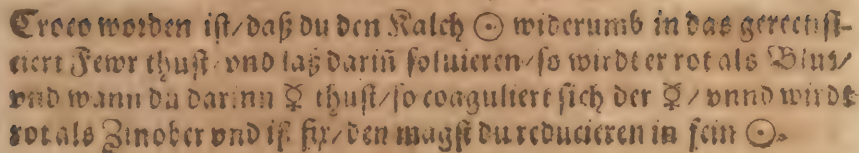 Croco worden iſt/daß du den Kalch ☉ widerumb in das gerectifi-
ciert Fewr thuſt/vnd laß dariñ ſoluieren/ſo wirdt er rot als Blut/
vnd wann du darinn ☿ thuſt/ſo coaguliert ſich der ☿/vnnd wirdt
rot als Zinober vnd iſt fix/den magſt du reducieren in fein ☉.